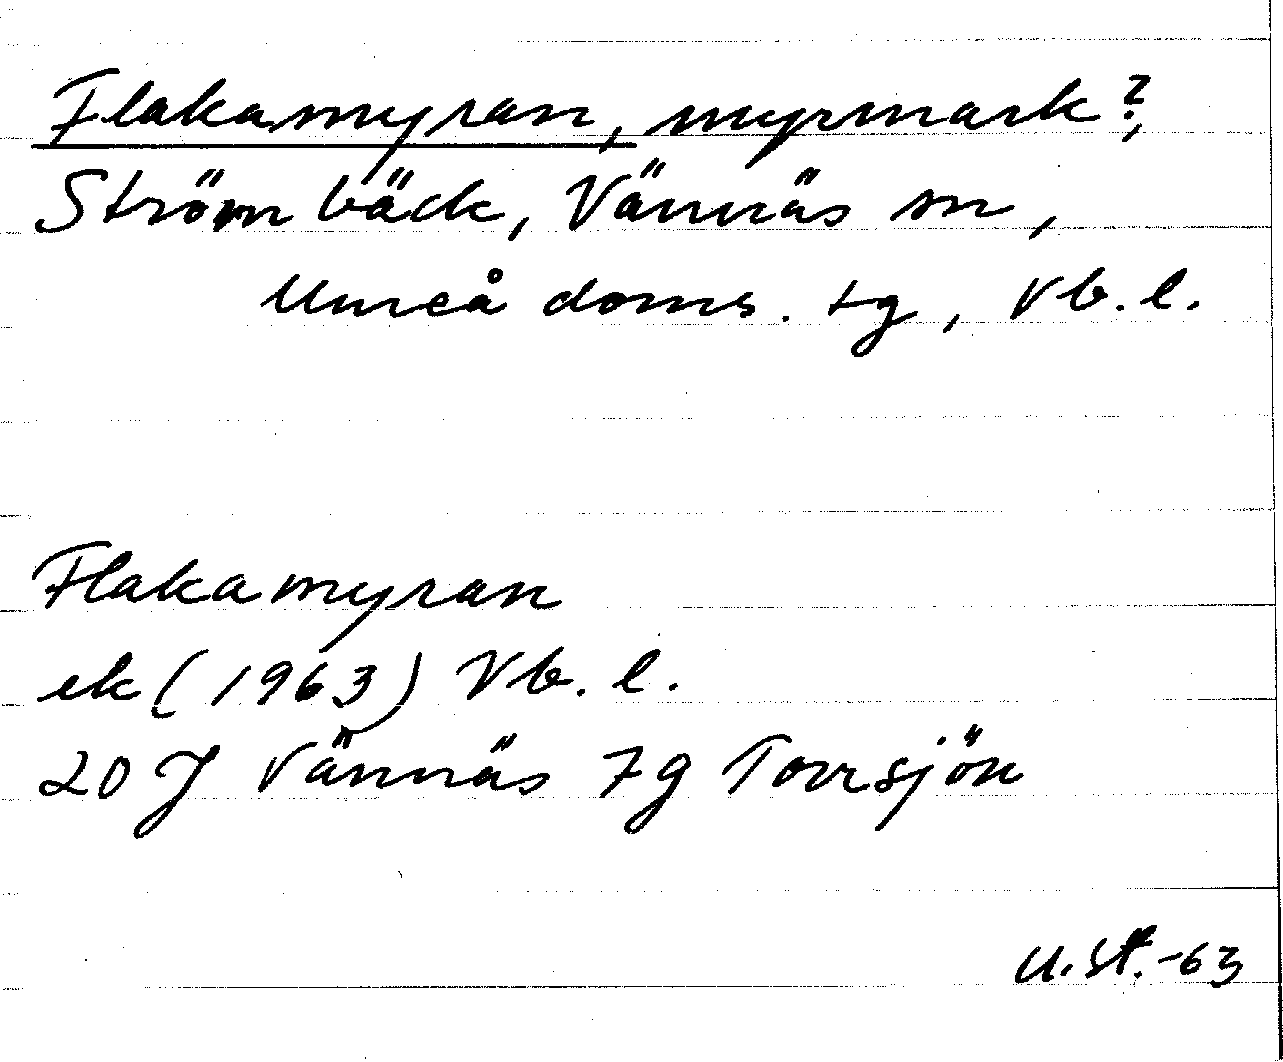 Flakamyran, myrmark?,
Strömbäck, Vännäs sn,
Umeå doms. tg, Vb. l.
Flakamyran
ek (1963) Vb. l.
20 J Vännäs 7g Torrsjön
U. St. -63